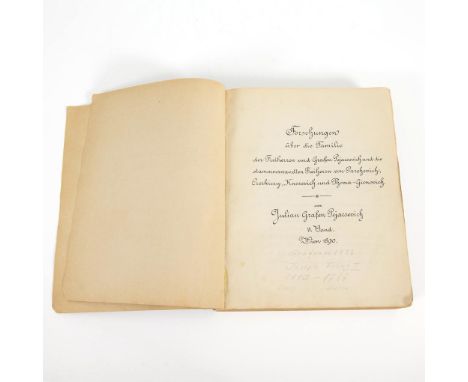 Forschungen
über die Familie
der Freiherren und Grafen Pejacsevich und die
stammverwandten Freiherren von Parchevich,
Czerkicsy, Knezevich und Thoma-Gionovich.
von
Julian Grafen Pejacsevich
V. Band.
Wien 1890.
Joseph